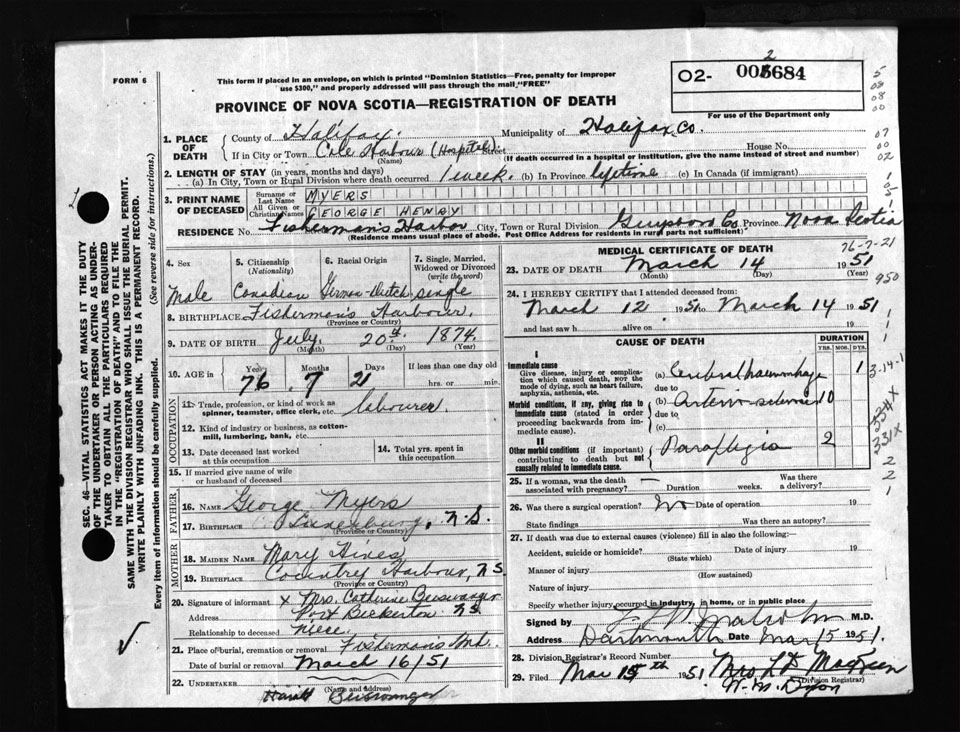 FORM 6
This form if placed in an envelope, on which is printed "Dominion Statistics—Free, penalty for improper
use $300," and properly addressed will pass through the mail "FREE"
2
O2- 005684
PROVINCE OF NOVA SCOTIA—REGISTRATION OF DEATH
For use of the Department only
1. PLACE OF DEATH County of Halifax. Municipality of Halifax Co.
If in City or Town Cole Harbour (Hospital) Street House No.
(Name) (If death occurred in a hospital or institution, give the name instead of street and number)
2. LENGTH OF STAY (in years, months and days)
(a) In City, Town or Rural Division where death occurred 1 week. (b) In Province lifetime (c) In Canada (if immigrant)
3. PRINT NAME OF DECEASED Surname or Last Name MYERS
All Given or Christian Names GEORGE HENRY
RESIDENCE No. Fisherman's Harbor City, Town or Rural Division Guysboro Co Province Nova Scotia
(Residence means usual place of abode. Post Office Address for residents in rural parts not sufficient)
4. Sex 5. Citizenship (Nationality) 6. Racial Origin 7. Single, Married, Widowed or Divorced (write the word)
Male Canadian German-Dutch single
8. BIRTHPLACE Fisherman's Harbour.
(Province or Country)
9. DATE OF BIRTH July 20th 1874
(Month) (Day) (Year)
10. AGE in Years Months Days If less than one day old
76 7 21 hrs. or min.
OCCUPATION
11. Trade, profession, or kind of work as spinner, teamster, office clerk, etc. labourer
12. Kind of industry or business, as cotton-mill, lumbering, bank, etc.
13. Date deceased last worked at this occupation
14. Total yrs. spent in this occupation
15. If married give name of wife or husband of deceased
FATHER
16. NAME George Myers
17. BIRTHPLACE Lunenburg, N.S.
(Province or Country)
MOTHER
18. MAIDEN NAME Mary Hines
19. BIRTHPLACE Country Harbour, N S
(Province or Country)
20. Signature of informant x Mrs. Catherine Beiswanger
Address Port Bickerton N.S.
Relationship to deceased niece
21. Place of burial, cremation or removal Fisherman's
Date of burial or removal March 16/51
22. UNDERTAKER Harold Beiswanger
(Name and address)
MEDICAL CERTIFICATE OF DEATH
76-7-21
23. DATE OF DEATH March 14 1951
(Month) (Day) (Year)
950
24. I HEREBY CERTIFY that I attended deceased from:
March 12 1951 to March 14 1951
and last saw h alive on 19
CAUSE OF DEATH DURATION
YRS. MOS. DYS.
I
Immediate cause
Give disease, injury or complication which caused death, NOT the mode of dying, such as heart failure, asphyxia, asthenia, etc.
(a) Cerebral haemorrhage 1
due to
3-14-1
Morbid conditions, if any, giving rise to immediate cause (stated in order proceeding backwards from immediate cause).
(b) Arterio-sclerosis 10
due to
(c)
334X
331X
II
Other morbid conditions (if important) contributing to death but not causally related to immediate cause.
Paraplegia 2
25. If a woman, was the death associated with pregnancy? — Duration weeks. Was there a delivery?
26. Was there a surgical operation? No Date of operation 19
State findings Was there an autopsy?
27. If death was due to external causes (violence) fill in also the following:
Accident, suicide or homicide? Date of injury 19
(State which)
Manner of injury
(How sustained)
Nature of injury
Specify whether injury occurred in industry, in home, or in public place
Signed by M.D.
Address Dartmouth Date Mar 15 1951.
28. Division Registrar's Record Number
29. Filed Mar 15th 1951
(Division Registrar)
SEC. 46—VITAL STATISTICS ACT MAKES IT THE DUTY
OF THE UNDERTAKER OR PERSON ACTING AS UNDER-
TAKER TO OBTAIN ALL THE PARTICULARS REQUIRED
IN THE "REGISTRATION OF DEATH" AND TO FILE THE
SAME WITH THE DIVISION REGISTRAR WHO SHALL ISSUE THE BURIAL PERMIT.
WRITE PLAINLY WITH UNFADING INK. THIS IS A PERMANENT RECORD.
Every item of information should be carefully supplied. (See reverse side for instructions).